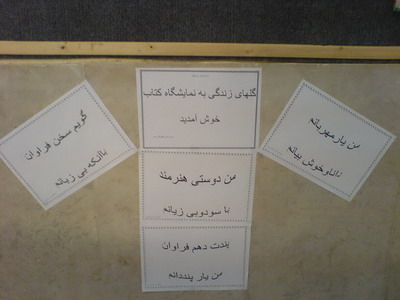 گلهای زندگی به نمایشگاه کتاب
خوش آمدید
من یار مهربانم
دانا و خوش بیانم
گویم سخن فراوان
باآنکه بی زبانم
من دوستی هنرمند
با سودوبی زیانم
پندت دهم فراوان
من یار پنددانم